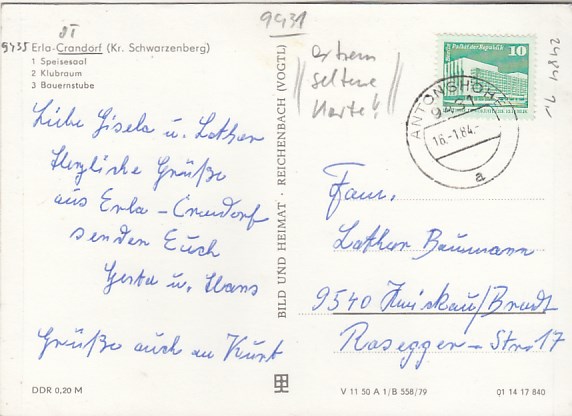 9431
OT
9435 Erla-Crandorf (Kr. Schwarzenberg)
1 Speisesaal
2 Klubraum
3 Bauernstube
Liebe Gisela u. Lothar
Herzliche Grüße
aus Erla-Crandorf
senden Euch
Gerta u. Hans
Grüße auch an Kurt
DDR 0,20 M
BILD UND HEIMAT · REICHENBACH (VOGTL)
extrem
seltene
Karte!
Palast der Republik
10
ANTONSHÖHE
9431
16.-1.84.-
a
2484
Fam.
Lothar Baumann
9540 Zwickau/Brodt
Rosegger-Str 17
V 11 50 A 1/B 558/79
01 14 17 840